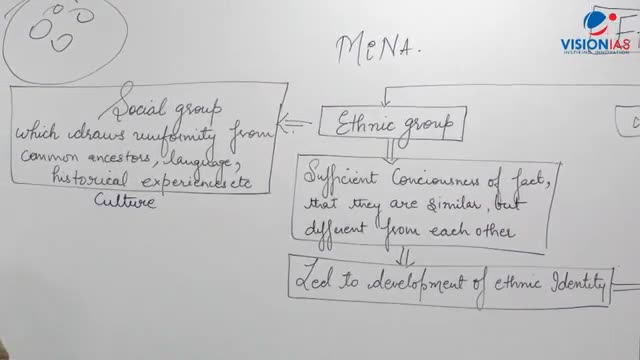 MiNA.
VISIONIAS
INSPIRING INNOVATION
Social group
which draws uniformity from
common ancestors, language,
historical experiences etc
Culture
Ethnic group
Sufficient Conciousness of fact,
that they are similar, but
different from each other
Led to development of ethnic Identity